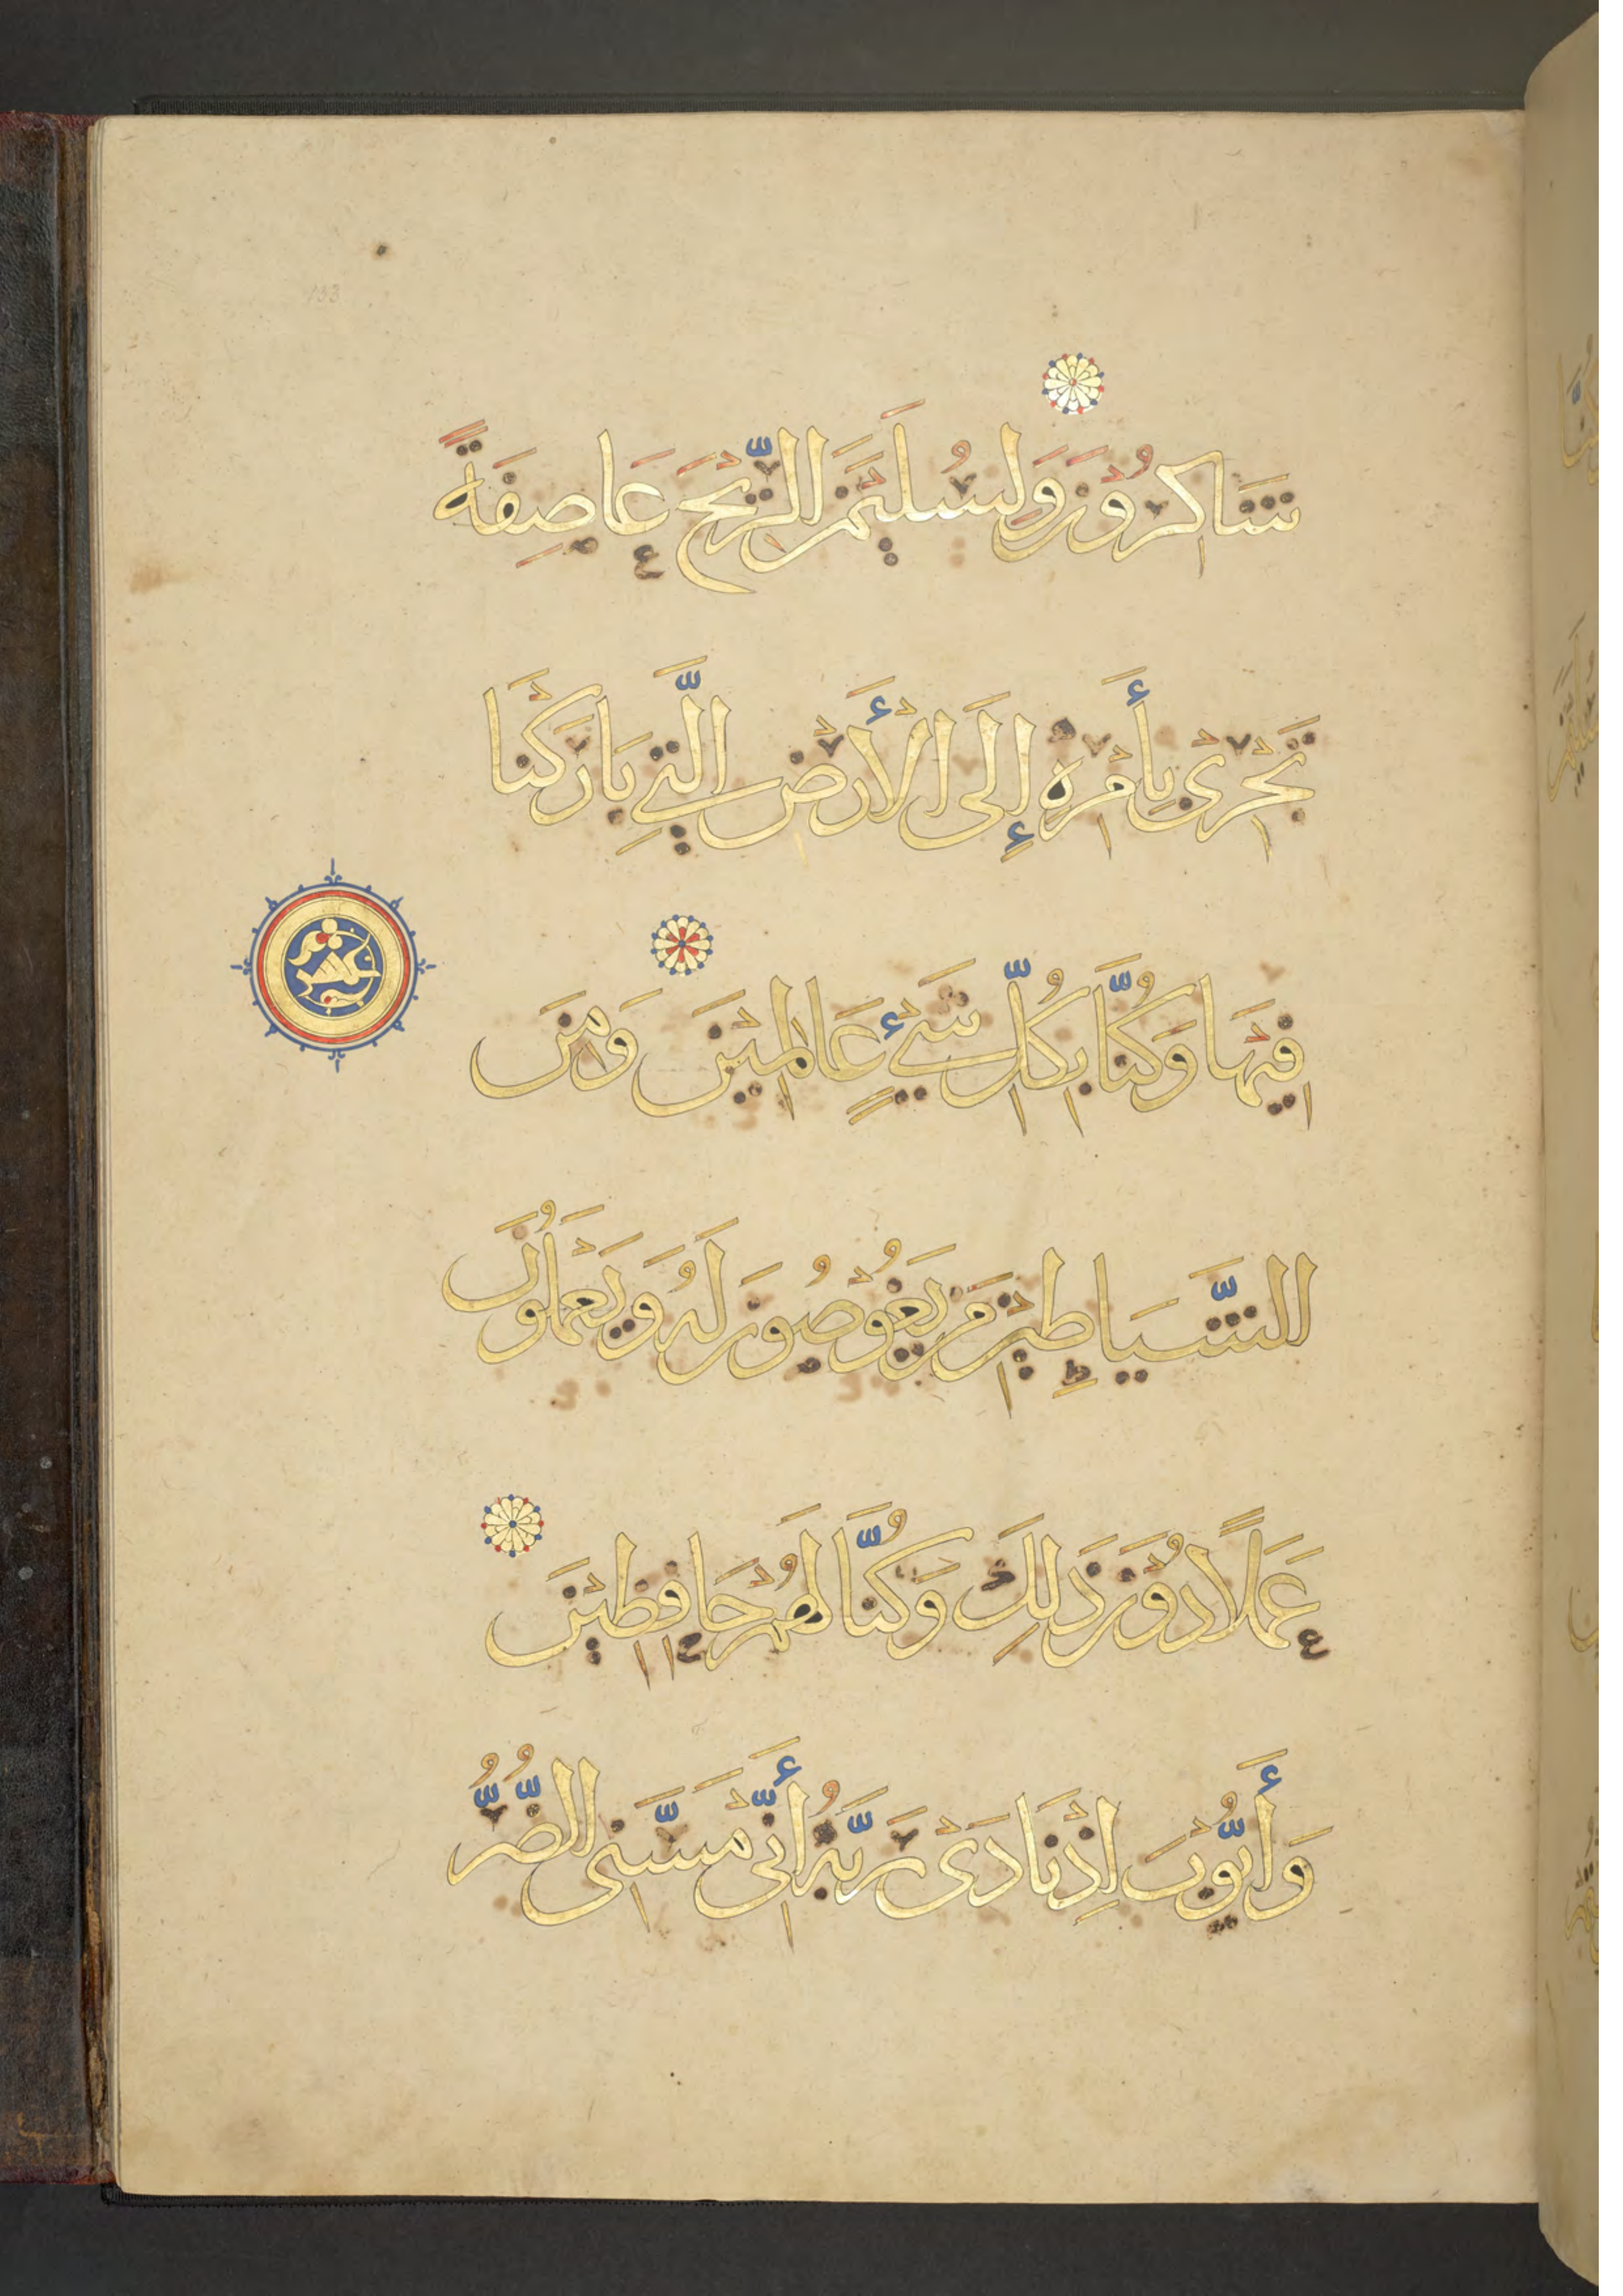 شَاكِرُونَ وَلِسُلَيْمَنَ الرِّيْحَ عَاصِفَةً
تَجْرِىْ بِأَمْرِهِ إِلَى الْأَرْضِ الَّتِي بَارَكْنَا
فِيْهَا وَكُنَّا بِكُلِّ شَيْءٍ عَالِمِيْنَ وَمِنَ
الشَّيَاطِيْنِ مَنْ يَغُوْصُونَ لَهُ وَيَعْمَلُوْنَ
عَمَلًا دُوْنَ ذَلِكَ وَكُنَّا لَهُمْ حَافِظِيْنَ
وَأَيُّوْبَ اِذْ نَادَىْ رَبَّهُ أَنِّيْ مَسَّنِىَ الضُّرُّ
عشر
153